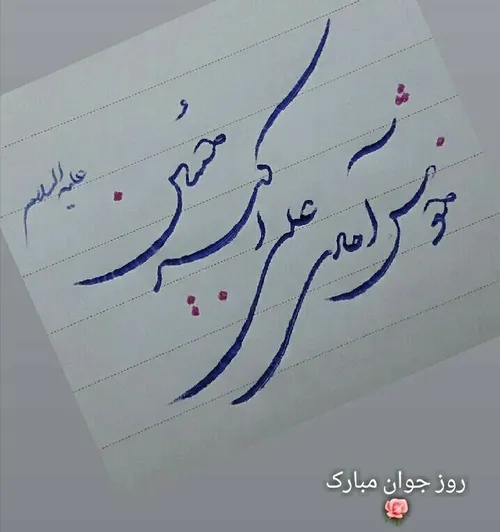 خوش آمدی علی اکبر حسین
علیه السلام
روز جوان مبارک